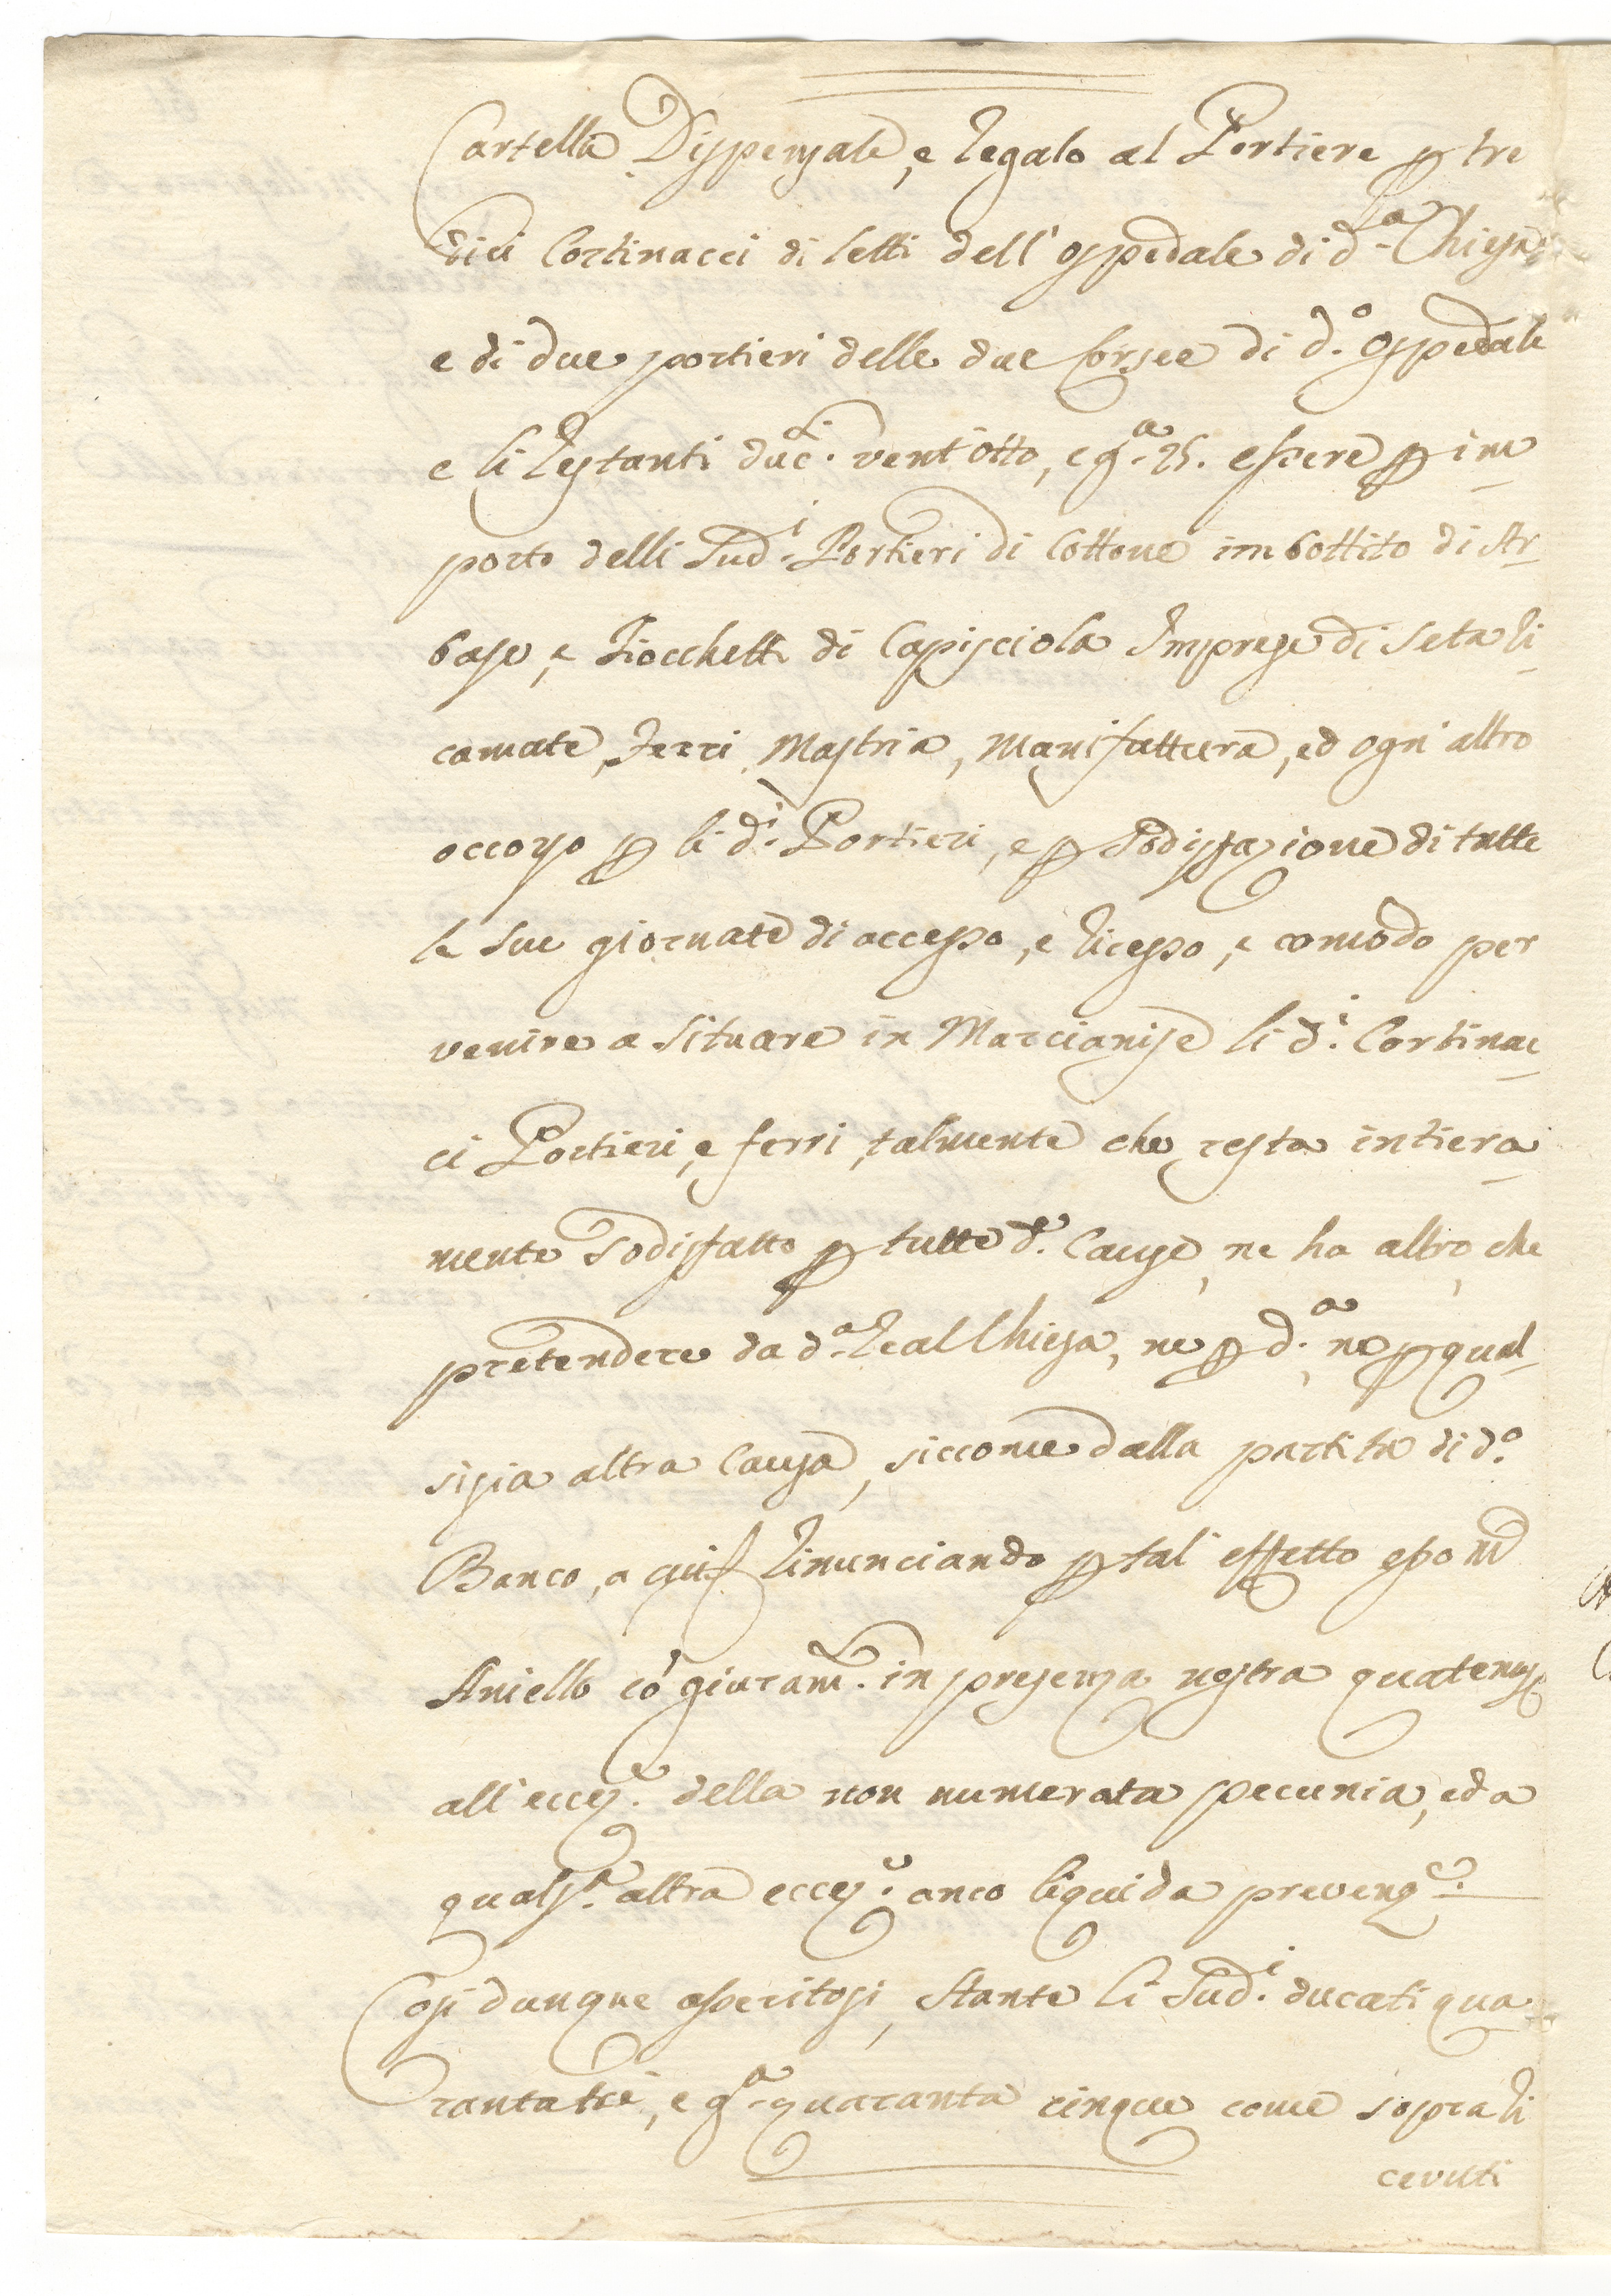 Cartella Dispensale, e regalo al Portiere p tre
dici Cortinacci di letti dell'ospedale di d.ª Chiesa,
e di due portieri delle due Corsee di d.º ospedale
e li restanti duc.ti vent'otto, e g.ª 25. essere p im
porto delli sud.i Portieri di Cottone imbottito di Ar
baso, e fiocchetti di Capisciola Imprese di seta ri
camate, ferri, Mastria, manifattura, ed ogni altro
occorso p li d.i Portieri, e p sodisfazione di tutte
le sue giornate di accesso, e ricesso, e comodo per
venire a situare in Marcianise li d.i Cortinac
ci Portieri, e ferri, talmente che resta intiera
mente sodisfatto p tutte d.e Cause, ne ha altro, che
pretendere da d.ª Real Chiesa, ne p d.ª ne p qual
sisia altra Causa, siccome dalla partita di d.º
Banco, a cui rinunciando p tal effetto esso M
Aniello cò giuram.to in presenza nostra quatenus
all'eccez.e della non numerata pecunia, ed a
quals.ª altra eccez.e anco liquida preveng.e
Così dunque asseritosi, stante li sud.i ducati qua
rantatré, e g.ª quaranta cinque come sopra ri
cevuti